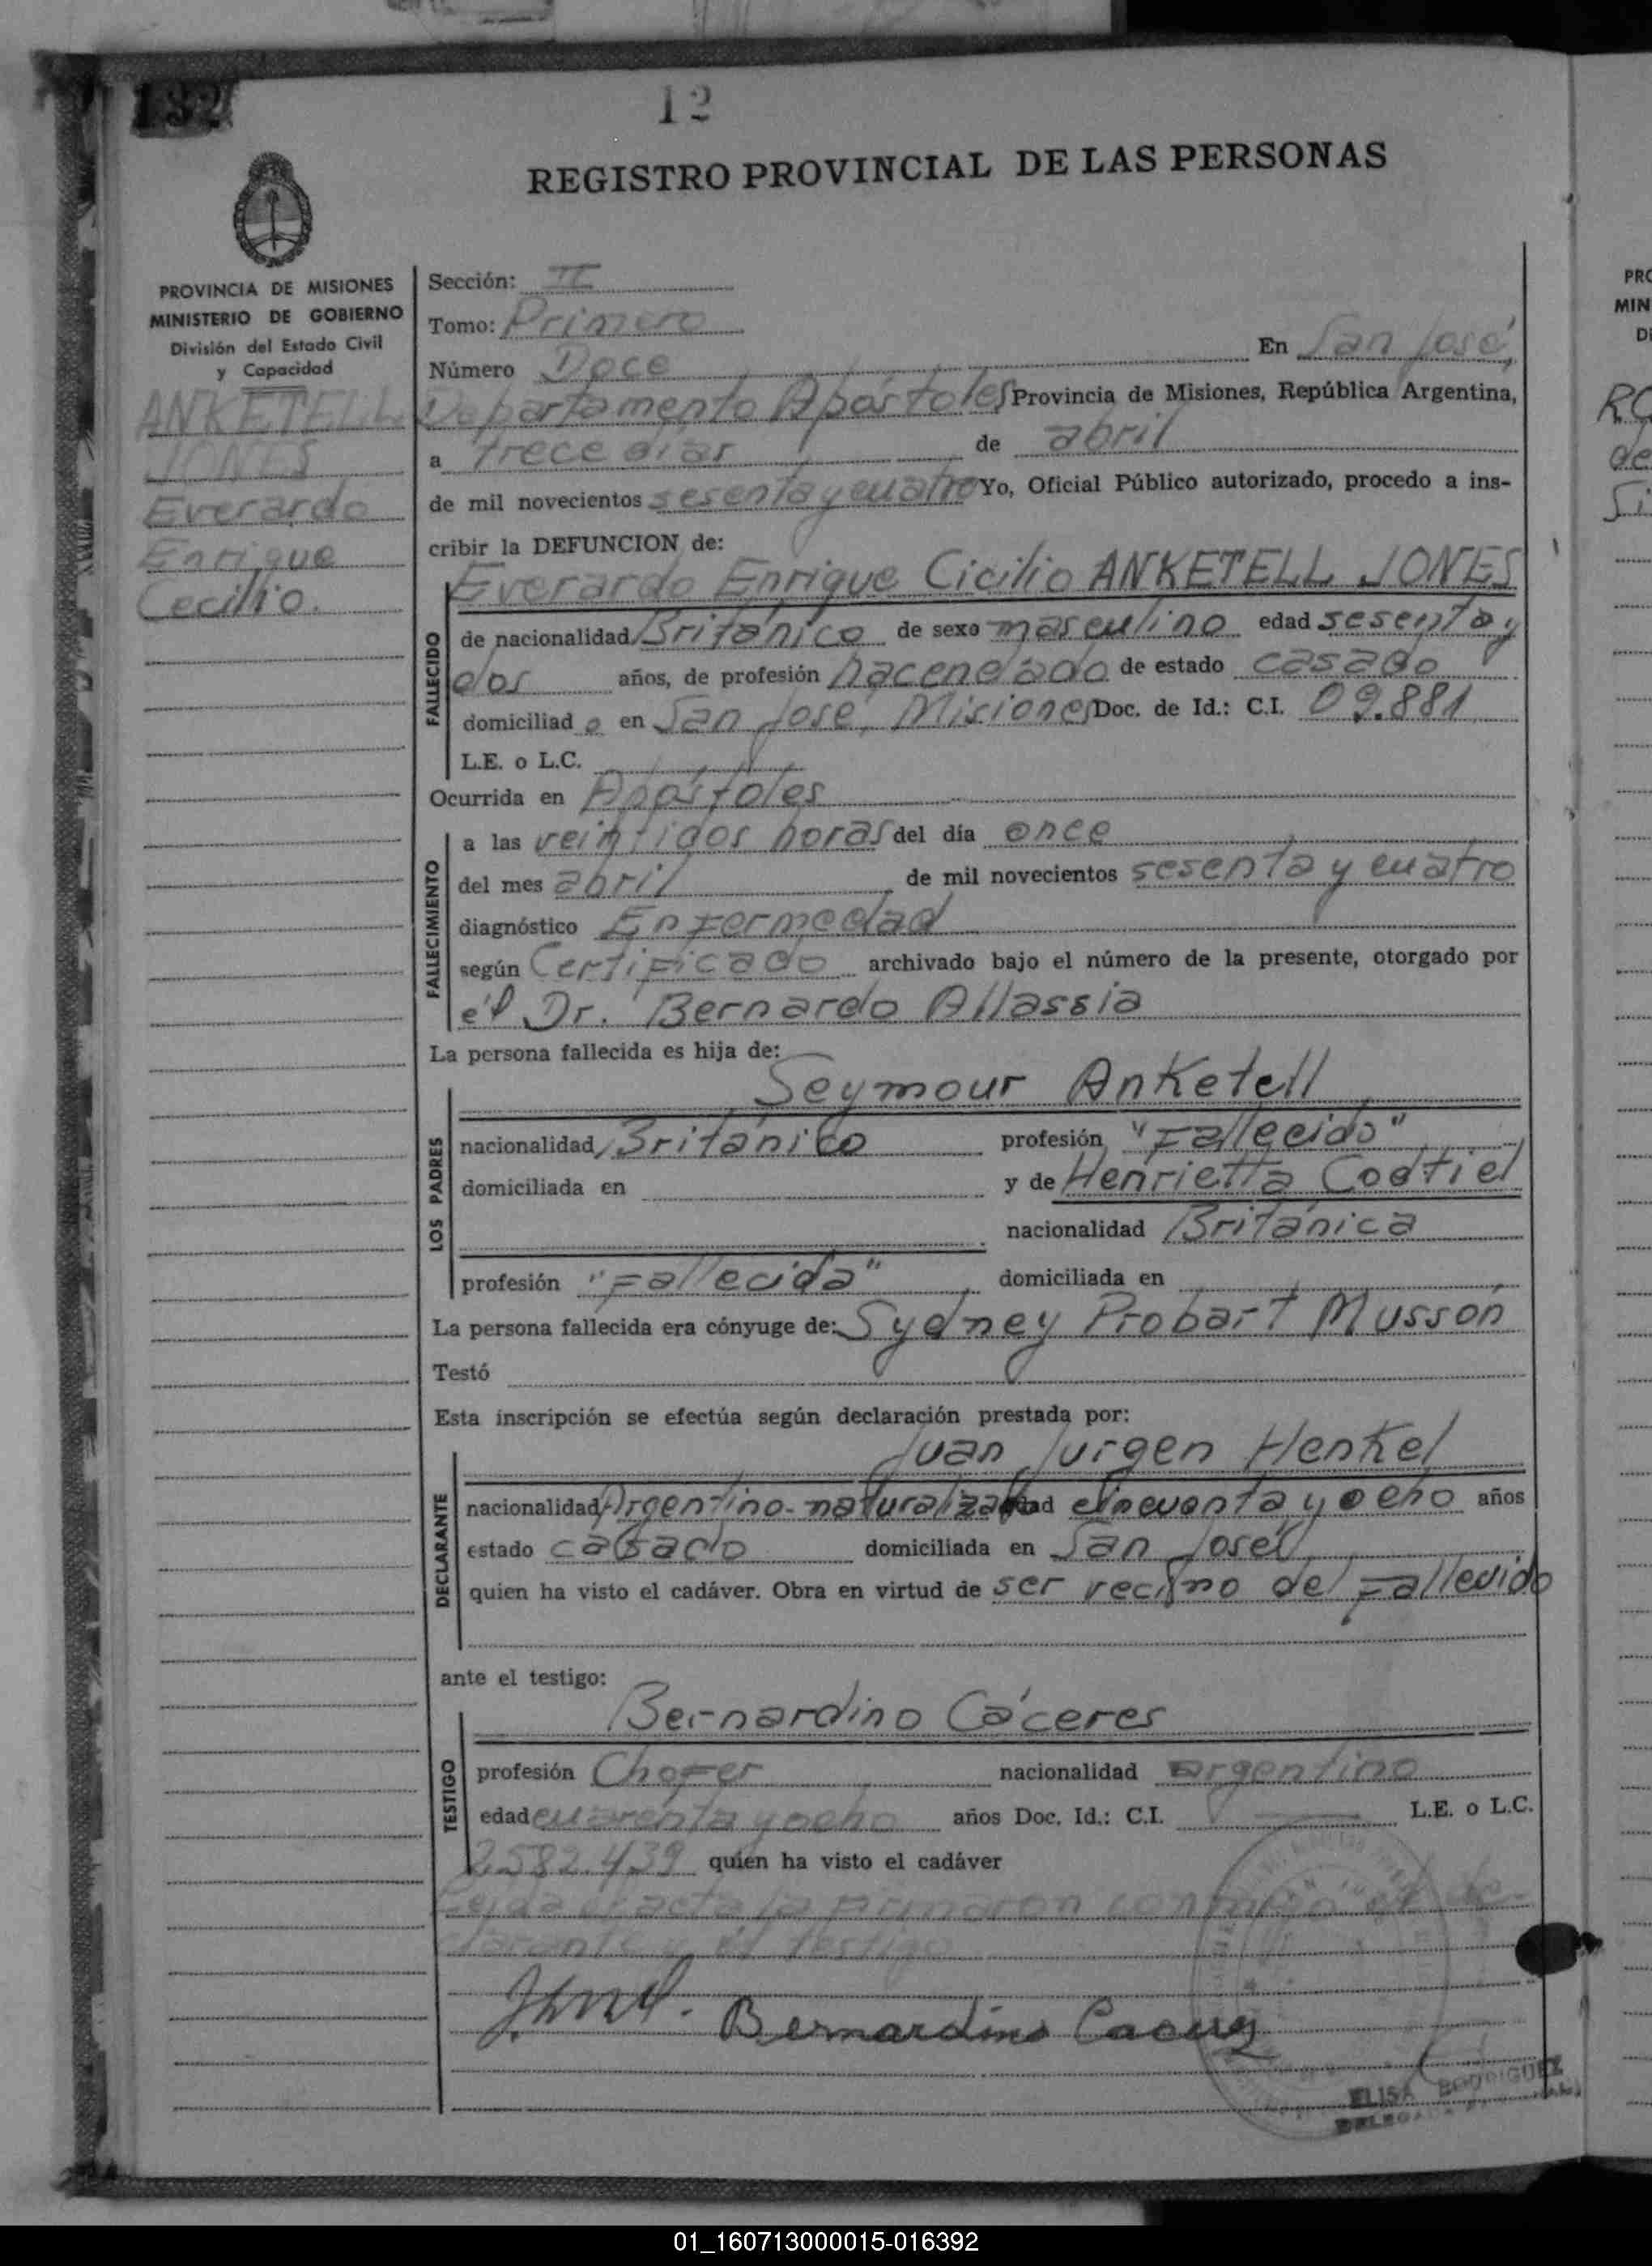 132
12
REGISTRO PROVINCIAL DE LAS PERSONAS
PROVINCIA DE MISIONES
MINISTERIO DE GOBIERNO
División del Estado Civil
y Capacidad
ANKETELL
JONES
Everardo
Enrique
Cecilio.
Sección: II
Tomo: Primero
Número Doce En San José,
Departamento Apóstoles Provincia de Misiones, República Argentina,
a trece días de abril
de mil novecientos sesenta y cuatro Yo, Oficial Público autorizado, procedo a ins-
cribir la DEFUNCION de:
Everardo Enrique Cicilio ANKETELL JONES
FALLECIDO
de nacionalidad Británico de sexo masculino edad sesenta y
dos años, de profesión hacendado de estado casado
domiciliad o en San José, Misiones Doc. de Id.: C.I. 09.881
L.E. o L.C.
Ocurrida en Apóstoles
FALLECIMIENTO
a las veintidos horas del día once
del mes abril de mil novecientos sesenta y cuatro
diagnóstico Enfermedad
según Certificado archivado bajo el número de la presente, otorgado por
el Dr. Bernardo Allassia
La persona fallecida es hija de:
LOS PADRES
Seymour Anketell
nacionalidad Británico profesión "Fallecido"
domiciliada en y de Henrietta
nacionalidad Británica
profesión "Fallecida" domiciliada en
La persona fallecida era cónyuge de: Sydney Probart Musson
Testó
Esta inscripción se efectúa según declaración prestada por:
DECLARANTE
Juan Jurgen Henkel
nacionalidad Argentino-naturalizado edad cincuenta y ocho años
estado casado domiciliada en San José
quien ha visto el cadáver. Obra en virtud de ser vecino del fallecido
ante el testigo:
TESTIGO
Bernardino Cáceres
profesión Chofer nacionalidad argentino
edad cuarenta y ocho años Doc. Id.: C.I. L.E. o L.C.
2.582.439 quien ha visto el cadáver
Leída el acta la firmaron conmigo el de-
clarante y el testigo
Bernardino Caceres
ELISA RODRIGUEZ
01_160713000015-016392